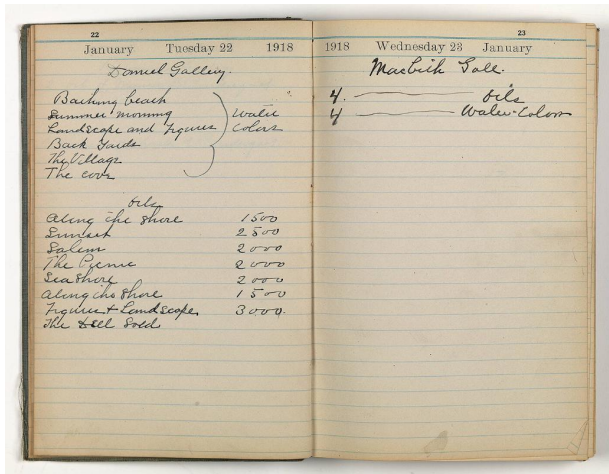 22
January Tuesday 22 1918
Daniel Gallery.
Bathing beach
Summer morning Water
Landscape and figures Colors
Back Yards
The Village
The cove
Oils
Along the Shore 1500
Sunset 2500
Salem 2000
The Picnic 2000
Sea Shore 2000
Along the Shore 1500
Figures + Landscape 3000.
The Dell Sold
23
1918 Wednesday 23 January
Macbeth Gall.
4. Oils
4 Water-Colors